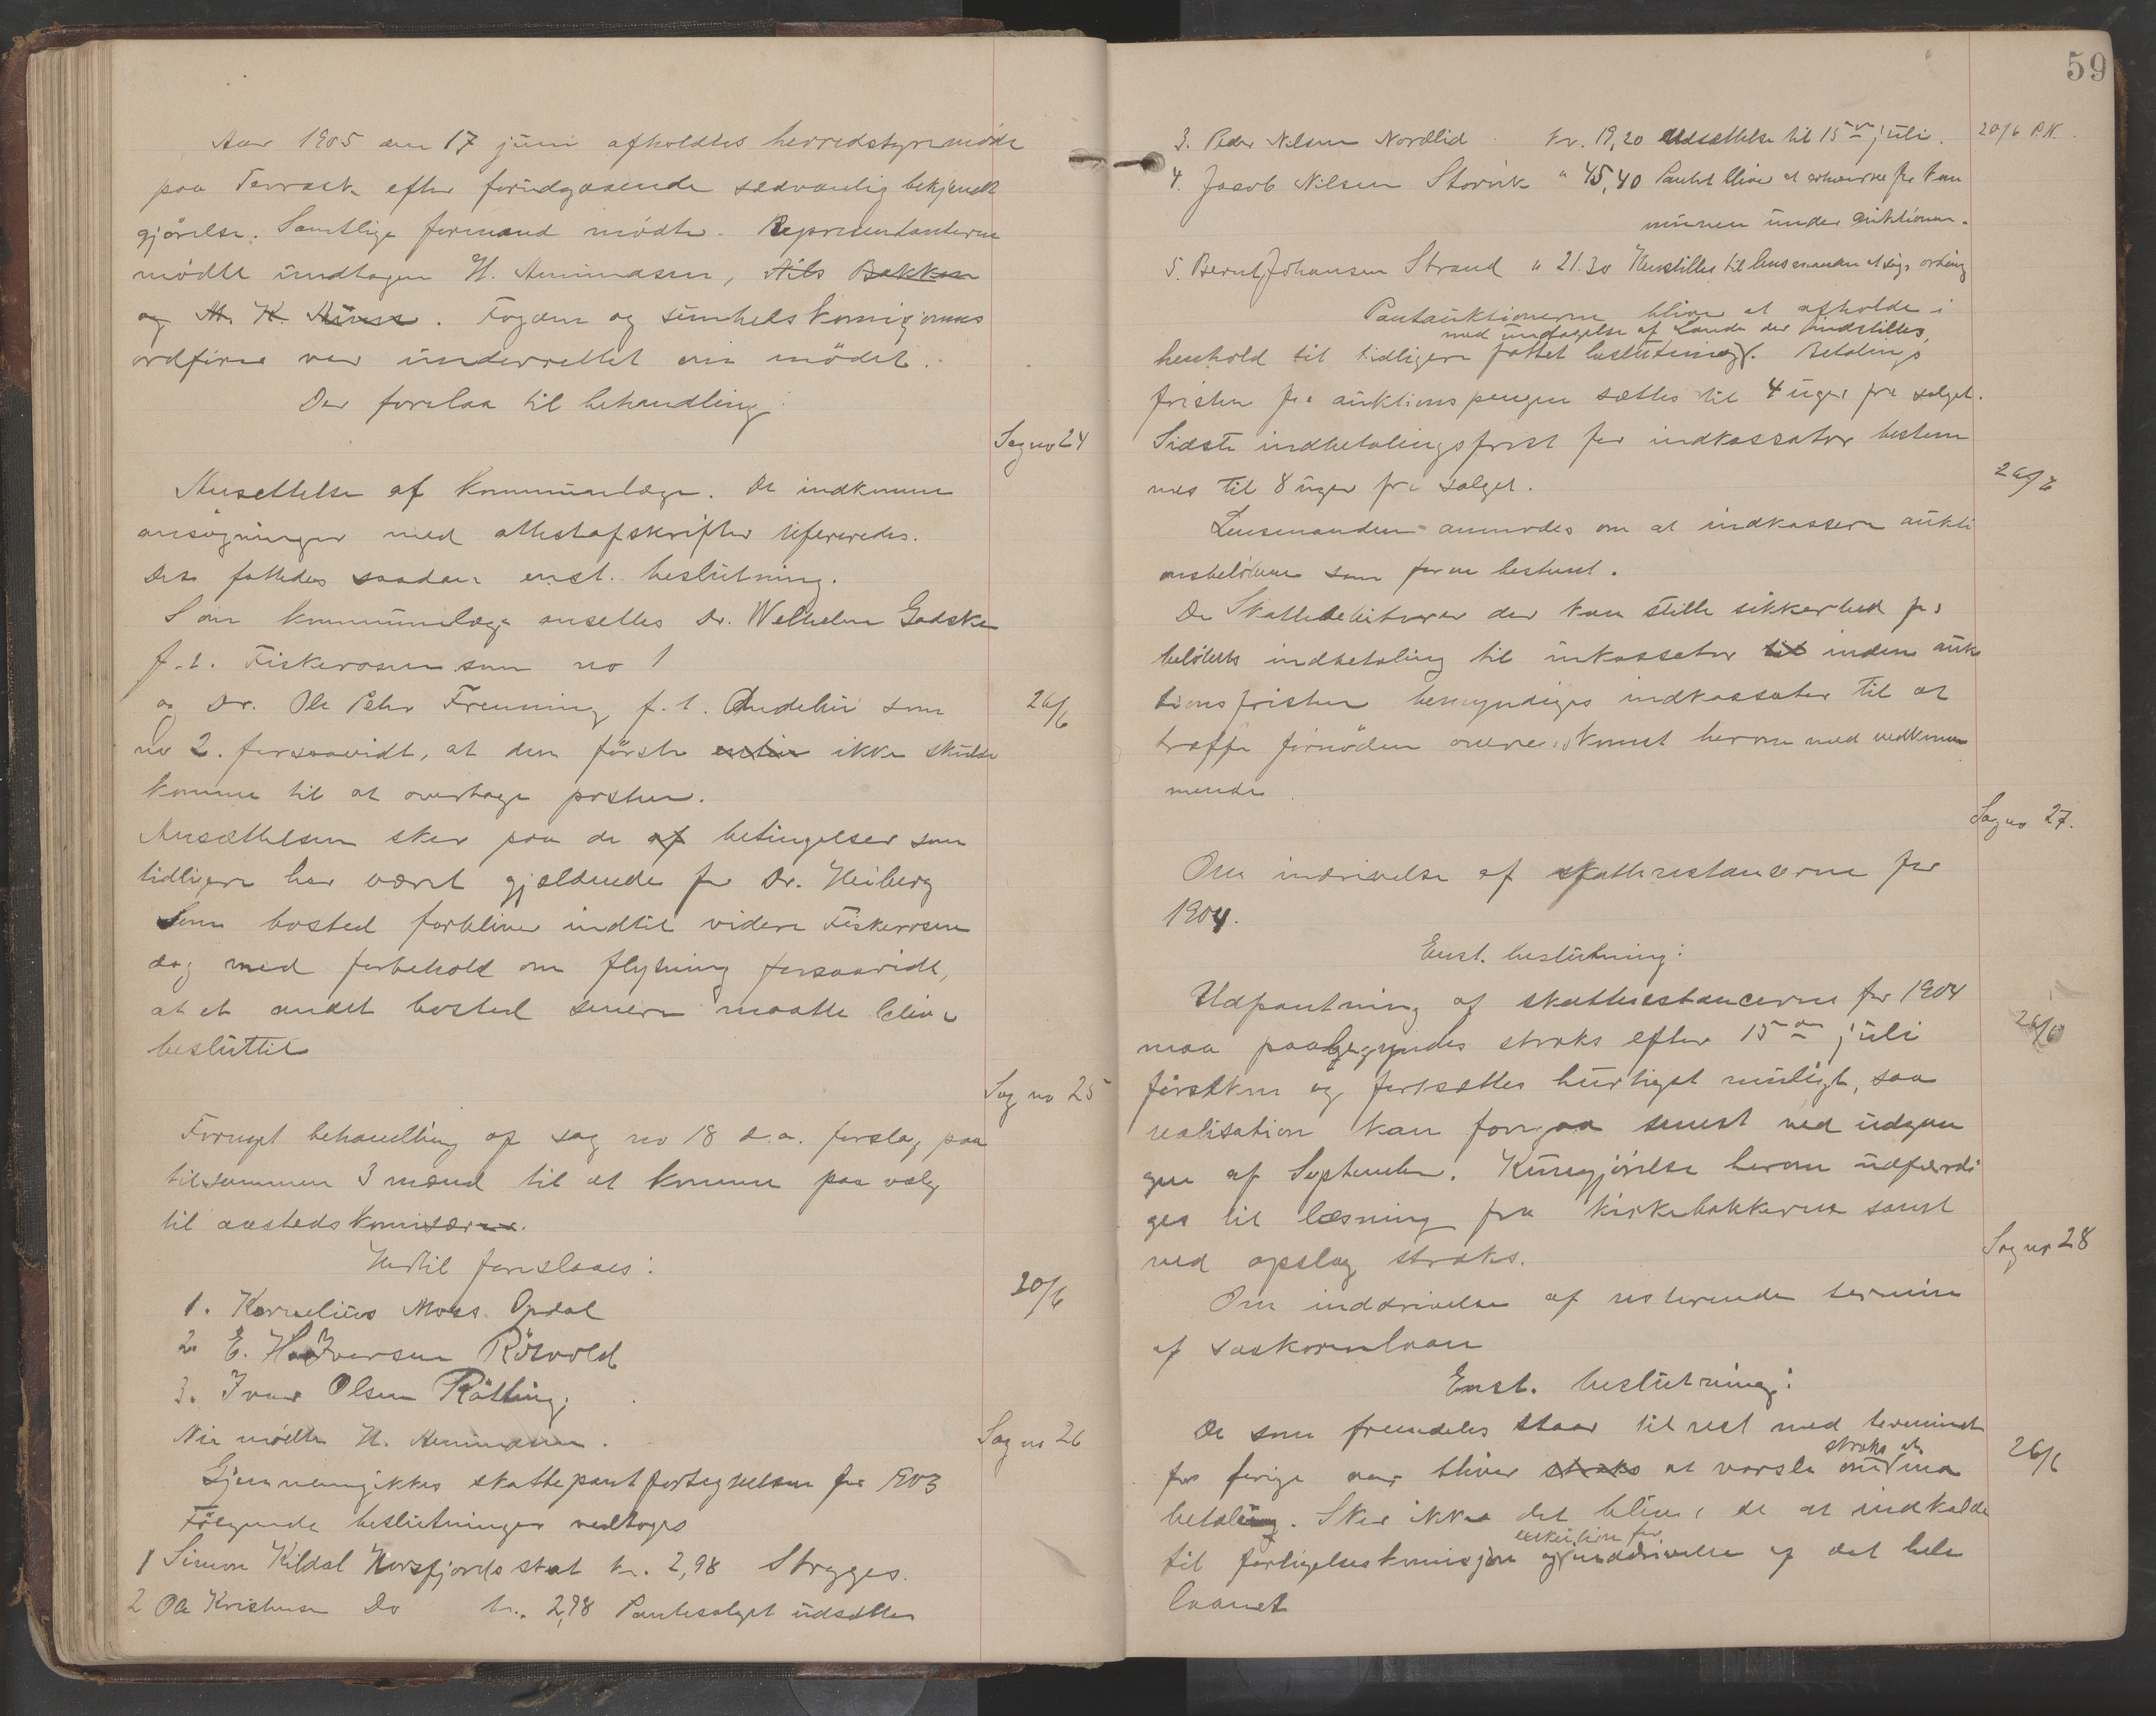 Aar 1905 den 17 juni afholdtes herredstyremøde
paa Terraak efter forudgaaende sædvanlig bekjendt
gjørelse. Samtlige formænd mødte. Repræsentanterne
mødte undtagen H. Amundsen, Nils Bakken
og A. K. Fogden og sundhetskomisjonens
ordfører var underrettet om mødet.
Der forelaa til behandling
Sag no 24
Ansettelse af kommunelæge. De indkomne
ansøgninger med attestafskrifter refereredes.
Der fattedes saadan enst. beslutning.
Som kommunelæge ansettes Dr. Wilhelm Godske
f. t. Fiskerosen som no 1
og Dr. Ole Peter Frenning f. t. som
26/6
no 2. forsaavidt, at den første ikke skulde
komme til at overtage posten.
Ansættelsen sker paa de af betingelser som
tidligere har været gjældende for Dr. Heiberg
Som bosted forbliver indtil videre Fiskerosen
dog med forbehold om flytning forsaavidt,
at et andet bosted senere maatte blive
besluttet
Sag no 25
Fornyet behandling af sag no 18 d.a. forslag paa
tilsammen 3 mænd til at komme paa valg
til aastedskomisærer.
Hertil foreslaaes:
20/6
1. Kornelius Moss. Opdal
2. E. H. Iversen Røsvold
3. Ivar Olsen Røtting.
Nu mødte H. Amundsen.
Sag no 26
Gjennemgikkes skattepantfortegnelsen for 1903
Følgende beslutninger vedtoges
1 Simon Kildal Horsfjord skat kr. 2,98 Stryges.
2 Ole Kristensen Do kr. 2,78 Pantesalget udsættes
59
3. Peder Nilsen Nordlid kr. 19,20 Udsættelse til 15de juli.
20/6 P.N.
4. Jacob Nilsen Storvik " 45,40 Pantet bliver at erhverve for kom
munen under auktionen.
5. Bernt Johansen Strand " 21.30 Henstilles til lensmanden at søge ordning
Pantauktionerne bliver at afholde i
med undtagelse af Lande der indstilles,
henhold til tidligere fattet beslutning. Betalings
fristen for auktionspengene sættes til 4 uger fra salget.
Sidste indbetalingsfrist for indkassator bestem
mes til 8 uger fra salget.
26/6
Lensmanden anmodes om at indkassere aukti
onsbeløbene som foran bestemt.
De Skattedebitorer der kan stille sikkerhed for
beløbets indbetaling til inkassator til inden auk
tionsfristen bemyndiges indkassator til at
træffe fornøden overenskomst herom med vedkom
mende
Sag no 27.
Om indrivelse af skatterestancerne for
1904.
Enst. beslutning:
Udpantning af skatterestancerne for 1904
maa paabegyndes straks efter 15de juli
26/6
førstkm og fortsættes hurtigst muligt, saa
realisation kan foregaa senest ved udgan
gen af September. Kundgjørelse herom udfærdi
ges til læsning fra kirkebakkerne samt
ved opslag straks.
Sag no 28
Om inddrivelse af resterende termin
af saakornlaan
Enst. beslutning:
De som fremdeles staar til rest med terminen
straks at
for forige aar bliver straks at varsle om
26/6
betaling. Sker ikke det bliver de at indkalde
exekution for
til forligelseskomisjon og inddrivelse af det hele
laanet